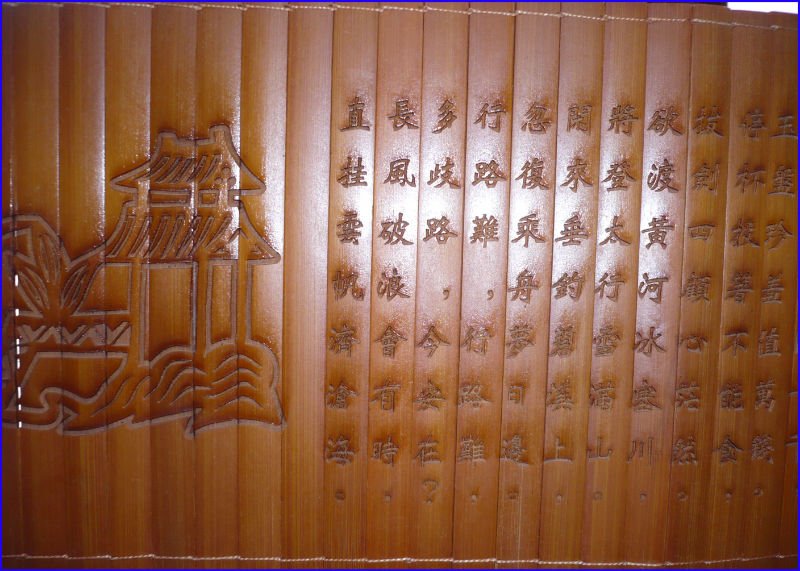 玉盤珍羞值萬錢,
停杯投箸不能食,
拔劍四顧心茫然。
欲渡黃河冰塞川,
將登太行雪滿山。
閒來垂釣碧溪上,
忽復乘舟夢日邊。
行路難,行路難,
多歧路,今安在?
長風破浪會有時,
直挂雲帆濟滄海。